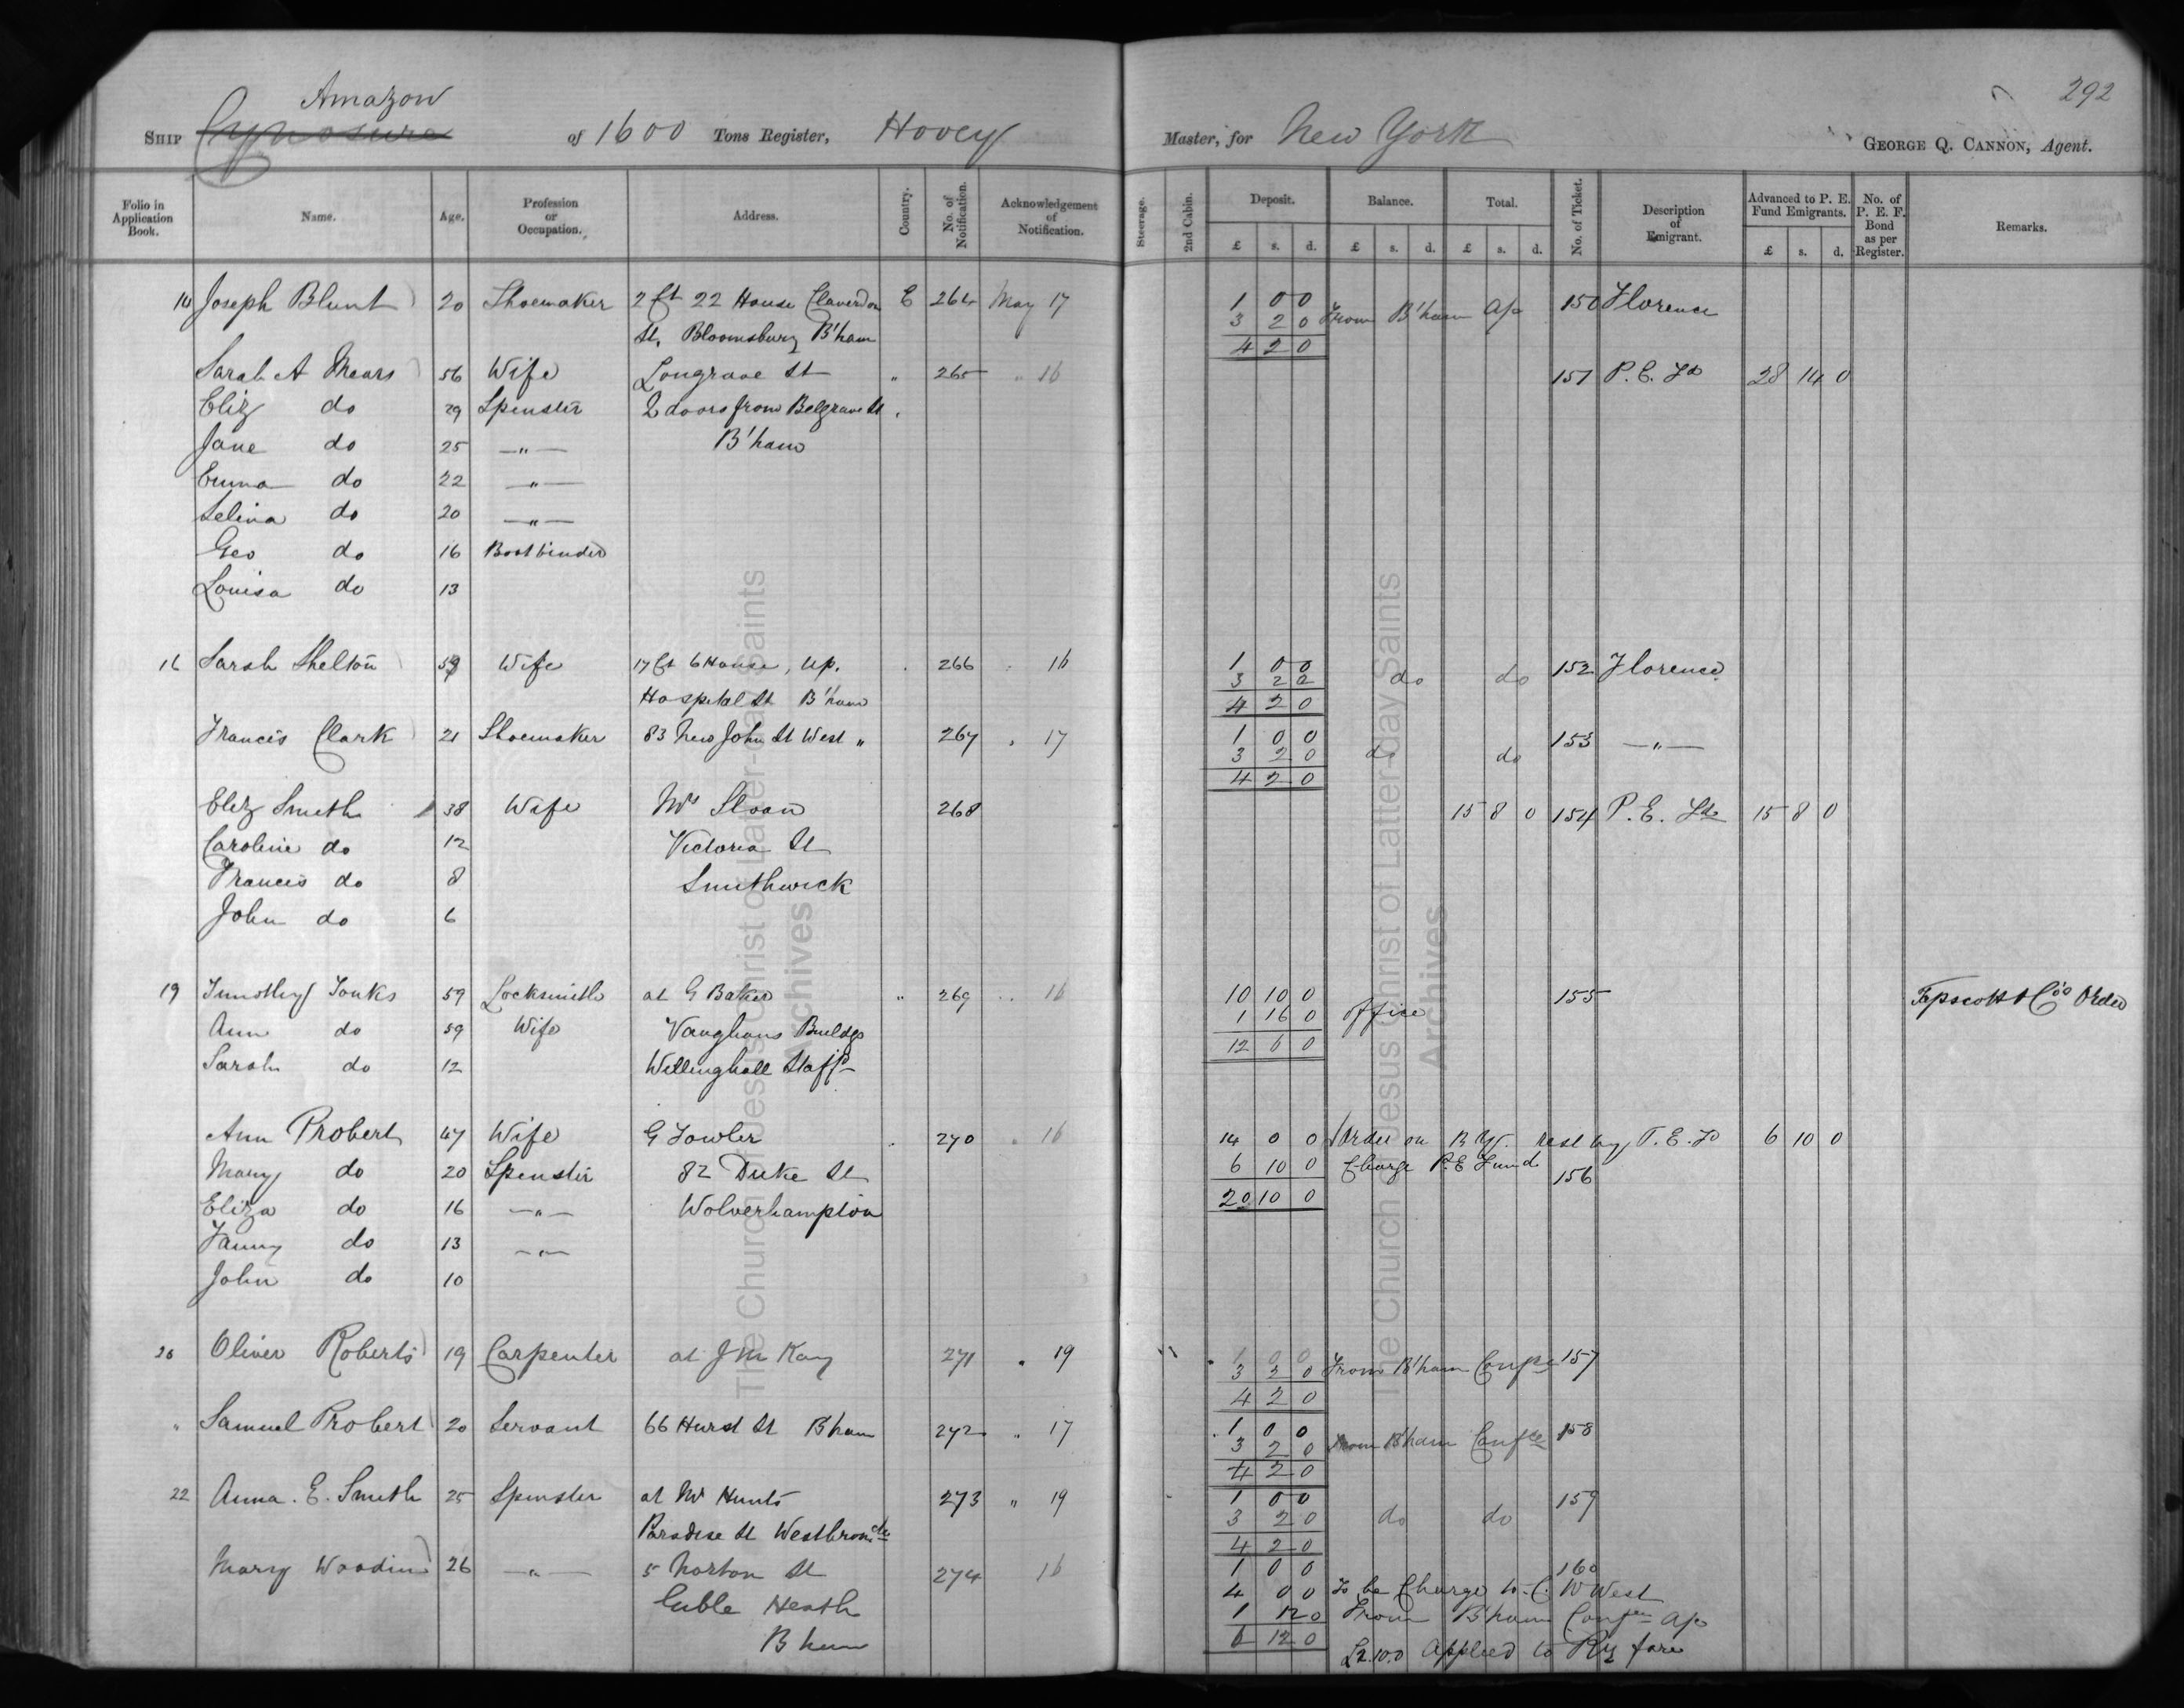 292
Amazon
SHIP Cynosure of 1600 Tons Register, Hovey Master, for New York GEORGE Q. CANNON, Agent.
Folio in Application Book. Name. Age. Profession or Occupation. Address. Country. No. of Notification. Acknowledgement of Notification. Steerage. 2nd Cabin. Deposit. £ s. d. Balance. £ s. d. Total. £ s. d. No. of Ticket. Description of Emigrant. Advanced to P. E. Fund Emigrants. £ s. d. No. of P. E. F. Bond as per Register. Remarks.
14 Joseph Blunt 20 Shoemaker 2 Ct 22 House Claverdon E 264 May 17 1 0 0 150 Florence
3 2 0 From B'ham a/c
St, Bloomsbury B'ham 4 2 0
Sarah A Mears 56 Wife Longrave St " 265 " 16 151 P. E. Fd 28 14 0
Eliz do 29 Spinster 2 doors from Belgrave St
Jane do 25 —"— B'ham
Emma do 22 —"—
Selina do 20 —"—
Geo do 16 Bootbinder
Louisa do 13
16 Sarah Shelton 59 Wife 17 Ct 6 House, up. 266 " 16 1 0 0 152 Florence
3 2 0 do do
Hospital St B'ham 4 2 0
Francis Clark 21 Shoemaker 83 New John St West " 267 " 17 1 0 0 153 —"—
3 2 0 do do
4 2 0
Eliz Smith 38 Wife Mrs Sloan 268 15 8 0 154 P. E. Fd 15 8 0
Caroline do 12 Victoria St
Francis do 8 Smithwick
John do 6
19 Timothy Tonks 59 Locksmith at G Baker " 269 " 16 10 10 0 155 Tapscott & Co's Order
1 16 0 office
Ann do 59 Wife Vaughans Buildgs
12 6 0
Sarah do 12 Willinghall Staff
Ann Probert 47 Wife G Fowler 270 " 16 14 0 0 Order on B Y. rest by P. E. Fd 6 10 0
Mary do 20 Spinster 82 Duke St 6 10 0 Charge P. E Fund 156
Eliza do 16 —"— Wolverhampton 20 10 0
Fanny do 13 —"—
John do 10
20 Oliver Roberts 19 Carpenter at J M Kay 271 " 19 1 0 0
3 2 0 From B'ham Confce 157
4 2 0
" Samuel Probert 20 Servant 66 Hurst St B'ham 272 " 17 1 0 0 158
3 2 0 From B'ham Confce
4 2 0
22 Anna. E. Smith 25 Spinster at Mr Hunts 273 " 19 1 0 0 159
3 2 0 do do
Paradise St Westbromch
4 2 0
Mary Woodin 26 —"— 5 Norton St 274 16 1 0 0 160
4 0 0 To be Charge to C. W West
Gible Heath
1 12 0 From B'ham Confce a/c
B'ham 6 12 0
£2.10.0 Applied to Ry fare
The Church of Jesus Christ of Latter-day Saints
Archives
The Church of Jesus Christ of Latter-day Saints
Archives